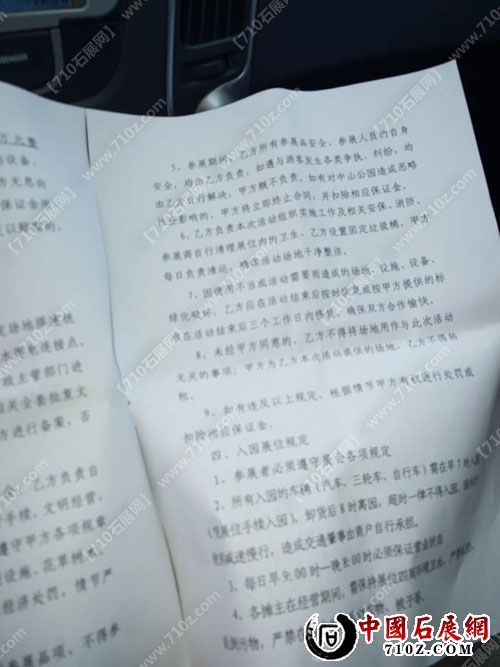 万元整
的设备、
方无息向
保证金
5、参展期间,乙方所有参展品安全、参展人员的自身
安全,均由乙方负责,如遇与游客发生各类争执、纠纷,均
由乙方自行解决,甲方概不负责。如有对中山公园造成恶略
社会影响的,甲方将立即终止合同,并扣除相应保证金。
6、乙方负责本次活动组织实施工作及相关安保、消防。
参展商自行清理展位内的卫生,乙方设置固定垃圾桶,甲方
每日负责清运,确保活动场地干净整洁。
7、因使用不当或活动需要而造成的场地、设施、设备、
绿化破坏,乙方应在活动结束后按时恢复或按甲方提供的标
准在活动结束后三个工作日内修复,确保双方合作愉快。
8、未经甲方同意的,乙方不得将场地用作与此次活动
无关的事项;甲方为乙方本次活动提供的场地,乙方不得转
租。
9、如有违反以上规定,根据情节甲方有权进行处罚或
扣除相应保证金。
四、入园展位规定
1、参展者必须遵守展会各项规定
2、所有入园的车辆(汽车、三轮车、自行车)需在早7时入园
(凭展位手续入园),卸货后8时离园,超时一律不得入园,
减速慢行,造成交通肇事由商户自行承担。
3、每日早9:00时一晚8:00时必须保证营业状态
4、各摊主在经营期间,需保持展位四周环境卫生,
乱倒污物,严禁
水电连接点,
政主管部门进
相关全套批复文
方进行备案,否
乙方负责自
手续,文明经营,
遵守甲方各项规章
设施、花草树木
经济处罚,情节严
展品项,不得参
【710石展网】
www.710z.com
中國石展網
www.710z.com